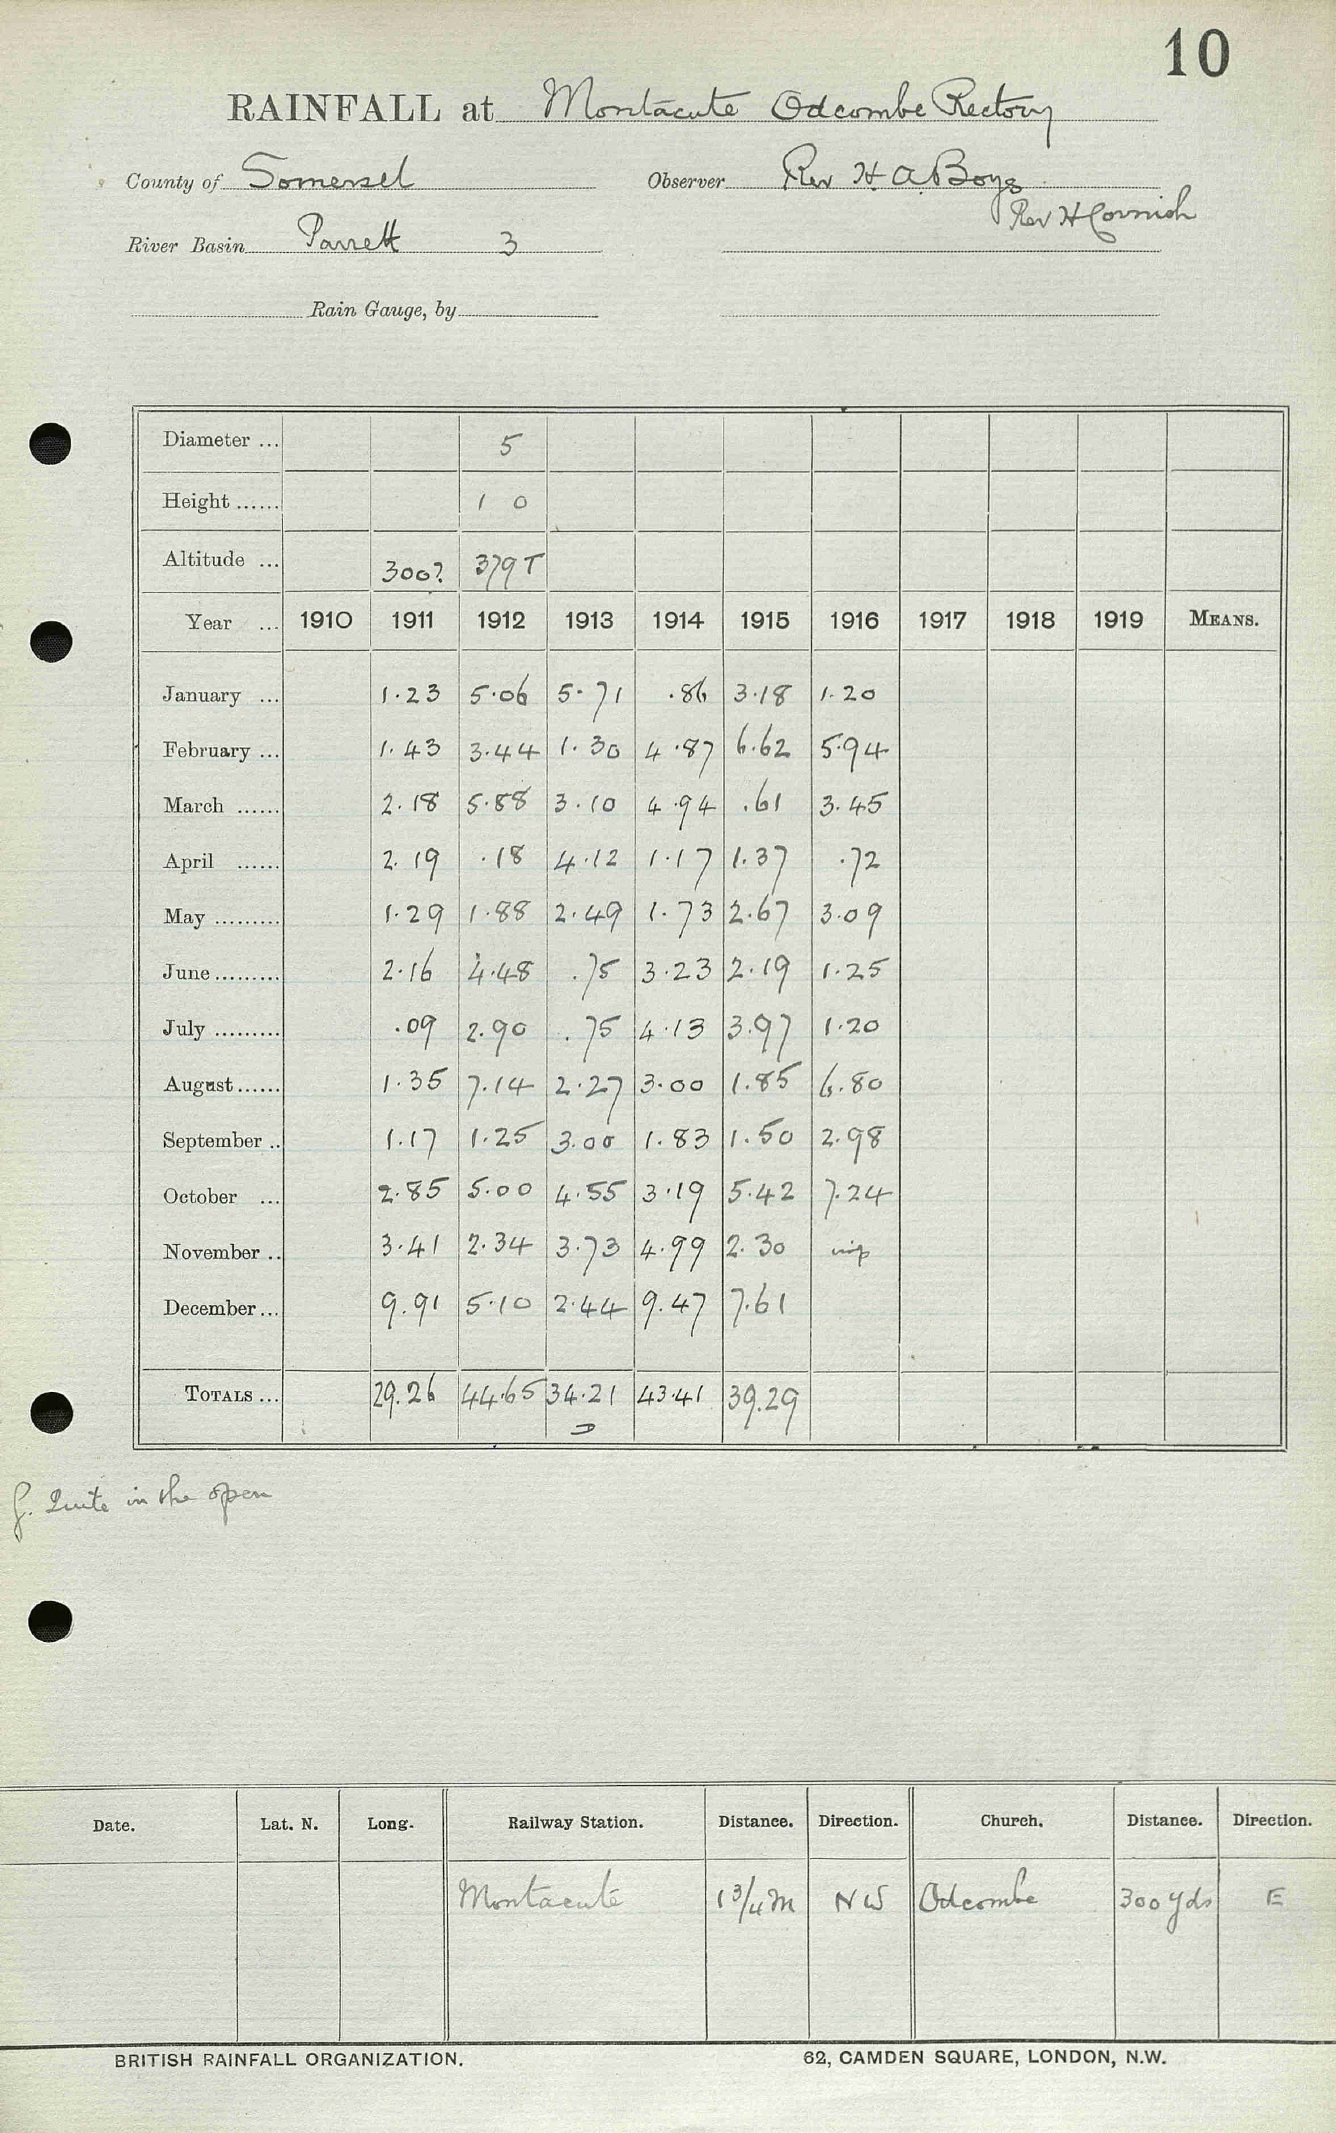 10
RAINFALL at Montacute Odcombe Rectory
County of Somerset Observer Rev H. A. Boys
Rev H Cornish
River Basin Parrett 3
Rain Gauge, by
Diameter ... 5
Height ...... 1 0
Altitude ... 300? 379 T
Year ... 1910 1911 1912 1913 1914 1915 1916 1917 1918 1919 MEANS.
January ... 1.23 5.06 5.71 .86 3.18 1.20
February ... 1.43 3.44 1.30 4.87 6.62 5.94
March ...... 2.18 5.88 3.10 4.94 .61 3.45
April ...... 2.19 .18 4.12 1.17 1.37 .72
May ......... 1.29 1.88 2.49 1.73 2.67 3.09
June ......... 2.16 4.48 .75 3.23 2.19 1.25
July ......... .09 2.90 .75 4.13 3.97 1.20
August ...... 1.35 7.14 2.27 3.00 1.85 6.80
September .. 1.17 1.25 3.00 1.83 1.50 2.98
October ... 2.85 5.00 4.55 3.19 5.42 7.24
November .. 3.41 2.34 3.73 4.99 2.30
December ... 9.91 5.10 2.44 9.47 7.61
TOTALS ... 29.26 44.65 34.21 43.41 39.29
G. Quite in the open
Date. Lat. N. Long. Railway Station. Distance. Direction. Church. Distance. Direction.
Montacute 1 3/4 m NW Odcombe 300 yds E
BRITISH RAINFALL ORGANIZATION. 62, CAMDEN SQUARE, LONDON, N.W.